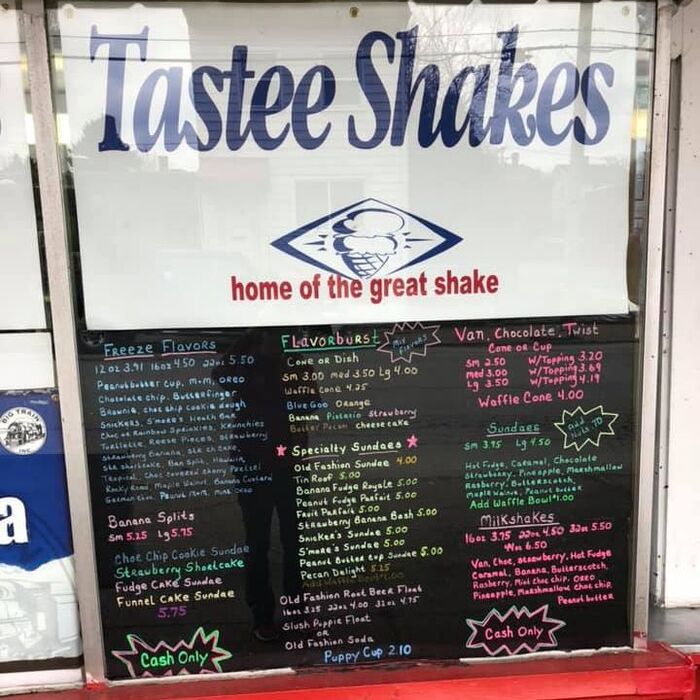 Tastee Shakes
home of the great shake
BIG TRAIN
INC
a
Freeze Flavors
12 oz 3.91 16oz 4.50 22oz 5.50
Peanutbutter Cup, M+M, Oreo
Chocolate chip, Butterfinger
Brownie, choc chip cookie dough
Snickers, S'more's, Heath Bar
Choc or Rainbow Sprinkles, Krunchies
Reese Pieces, Strawberry
Strawberry Banana,
Ban Split, Hawaiin
Tropical, Choc covered cherry Pretzel
Rocky Road, Maple Walnut, Banana Custard
German Choc, Peanut
Banana Splits
Sm 5.25 Lg 5.75
Choc Chip Cookie Sundae
Strawberry Shortcake
Fudge Cake Sundae
Funnel Cake Sundae
5.75
Cash Only
Flavorburst
Mix Flavors
Cone or Dish
Sm 3.00 med 3.50 Lg 4.00
Waffle Cone 4.25
Blue Goo Orange
Banana Pistachio Strawberry
Butter Pecan cheesecake
Specialty Sundaes
Old Fashion Sundae 4.00
Tin Roof 5.00
Banana Fudge Royale 5.00
Peanut Fudge Parfait 5.00
Fruit Parfait 5.00
Strawberry Banana Bash 5.00
Snicker's Sundae 5.00
S'more's Sundae 5.00
Peanut Butter Cup Sundae 5.00
Pecan Delight 5.25
Add Waffle Bowl 1.00
Old Fashion Root Beer Float
16oz 3.25 22oz 4.00 32oz 4.75
Slush Puppie Float
or
Old Fashion Soda
Puppy Cup 2.10
Van, Chocolate, Twist
Cone or Cup
Sm 2.50 W/Topping 3.20
med 3.00 W/Topping 3.69
Lg 3.50 W/Topping 4.19
Waffle Cone 4.00
Sundaes
Add Nuts .70
Sm 3.75 Lg 4.50
Hot Fudge, Caramel, Chocolate
Strawberry, Pineapple, Marshmallow
Raspberry, Butterscotch,
Maple Walnut, Peanut Butter
Add Waffle Bowl $1.00
Milkshakes
16oz 3.75 22oz 4.50 32oz 5.50
6.50
Van, Choc, Strawberry, Hot Fudge
Caramel, Banana, Butterscotch,
Rashberry, Mint choc chip, Oreo
Pineapple, Marshmallow, choc chip,
Peanut butter
Cash Only